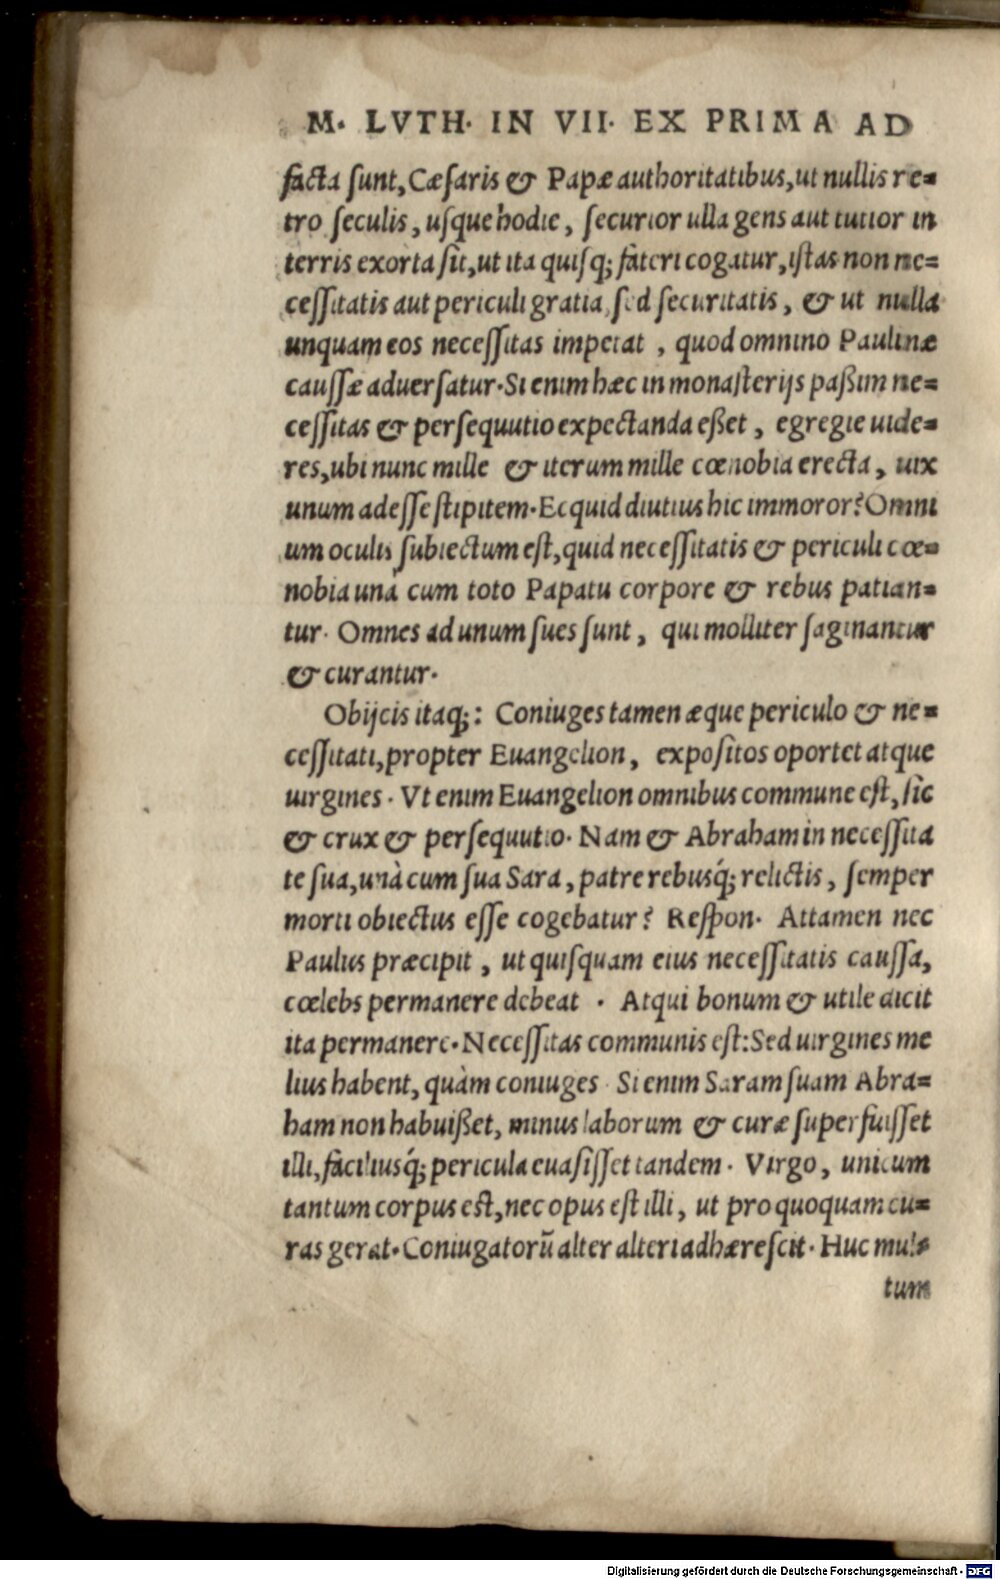 M. LVTH. IN VII. EX PRIMA AD
facta ſunt, Cæſaris & Papæ authoritatibus, ut nullis re=
tro ſeculis, uſque hodie, ſecurior ulla gens aut tutior in
terris exorta ſit, ut ita quiſq; fateri cogatur, iſtas non ne=
ceſſitatis aut periculi gratia, ſed ſecuritatis, & ut nulla
unquam eos neceſſitas impetat, quod omnino Paulinæ
cauſſæ aduerſatur. Si enim hæc in monaſterijs paßim ne=
ceſſitas & perſequutio expectanda eßet, egregie uide=
res, ubi nunc mille & iterum mille cœnobia erecta, uix
unum adeſſe ſtipitem. Ecquid diutius hic immoror? Omni
um oculis ſubiectum eſt, quid neceſſitatis & periculi cœ=
nobia unà cum toto Papatu corpore & rebus patian=
tur. Omnes ad unum ſues ſunt, qui molliter ſaginantur
& curantur.
Obijcis itaq;: Coniuges tamen æque periculo & ne=
ceſſitati, propter Euangelion, expoſitos oportet atque
uirgines. Vt enim Euangelion omnibus commune eſt, ſic
& crux & perſequutio. Nam & Abraham in neceſſita
te ſua, unà cum ſua Sara, patre rebusq́; relictis, ſemper
morti obiectus eſſe cogebatur? Reſpon. Attamen nec
Paulus præcipit, ut quiſquam eius neceſſitatis cauſſa,
cœlebs permanere debeat. Atqui bonum & utile dicit
ita permanere. Neceſſitas communis eſt: Sed uirgines me
lius habent, quàm coniuges. Si enim Saram ſuam Abra=
ham non habuißet, minus laborum & curæ ſuperfuiſſet
illi, faciliusq́; pericula euaſiſſet tandem. Virgo, unicum
tantum corpus eſt, nec opus eſt illi, ut pro quoquam cu=
ras gerat. Coniugatorũ alter alteri adhæreſcit. Huc mul=
tum
Digitalisierung gefördert durch die Deutsche Forschungsgemeinschaft - DFG